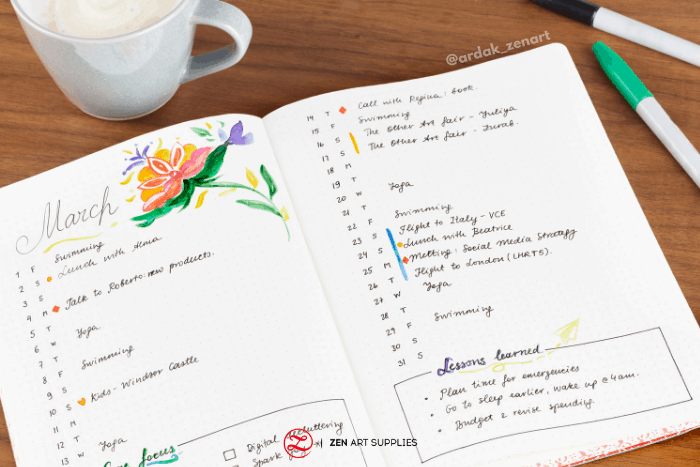 @ardak_zenart
March
1 F Swimming
2 S Lunch with Alma
3 S
4 M Talk to Roberto: new products.
5 T
6 W Yoga
7 T
8 F Swimming
9 S
10 S Kids - Windsor Castle
11 M
12 T
13 W Yoga
focus
Digital decluttering
Spark
14 T Call with Regina: book.
15 F Swimming
16 S The Other Art fair - Yuliya
17 S The Other Art fair - Zurab.
18 M
19 T
20 W Yoga
21 T
22 F Swimming
23 S Flight to Italy - VCE
24 S Lunch with Beatrice
25 M Metting: Social Media Strategy
26 T Flight to London (LHR T5).
27 W Yoga
28 T
29 F Swimming
30 S
31 S
Lessons learned
• Plan time for emergencies
• Go to sleep earlier, wake up @ 4am.
• Budget 2 revise spending.
ZEN ART SUPPLIES